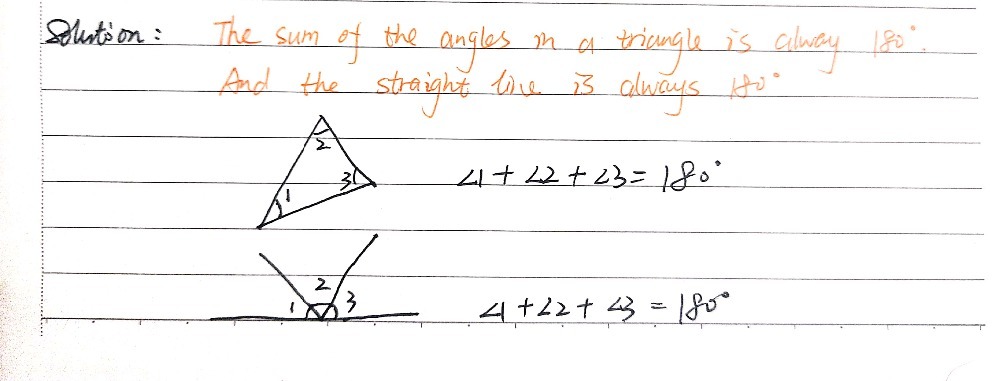 Solution: The sum of the angles in a triangle is alway 180°.
And the straight line is always 180°
2
3
1
∠1+∠2+∠3=180°
2
1 3
∠1+∠2+∠3=180°